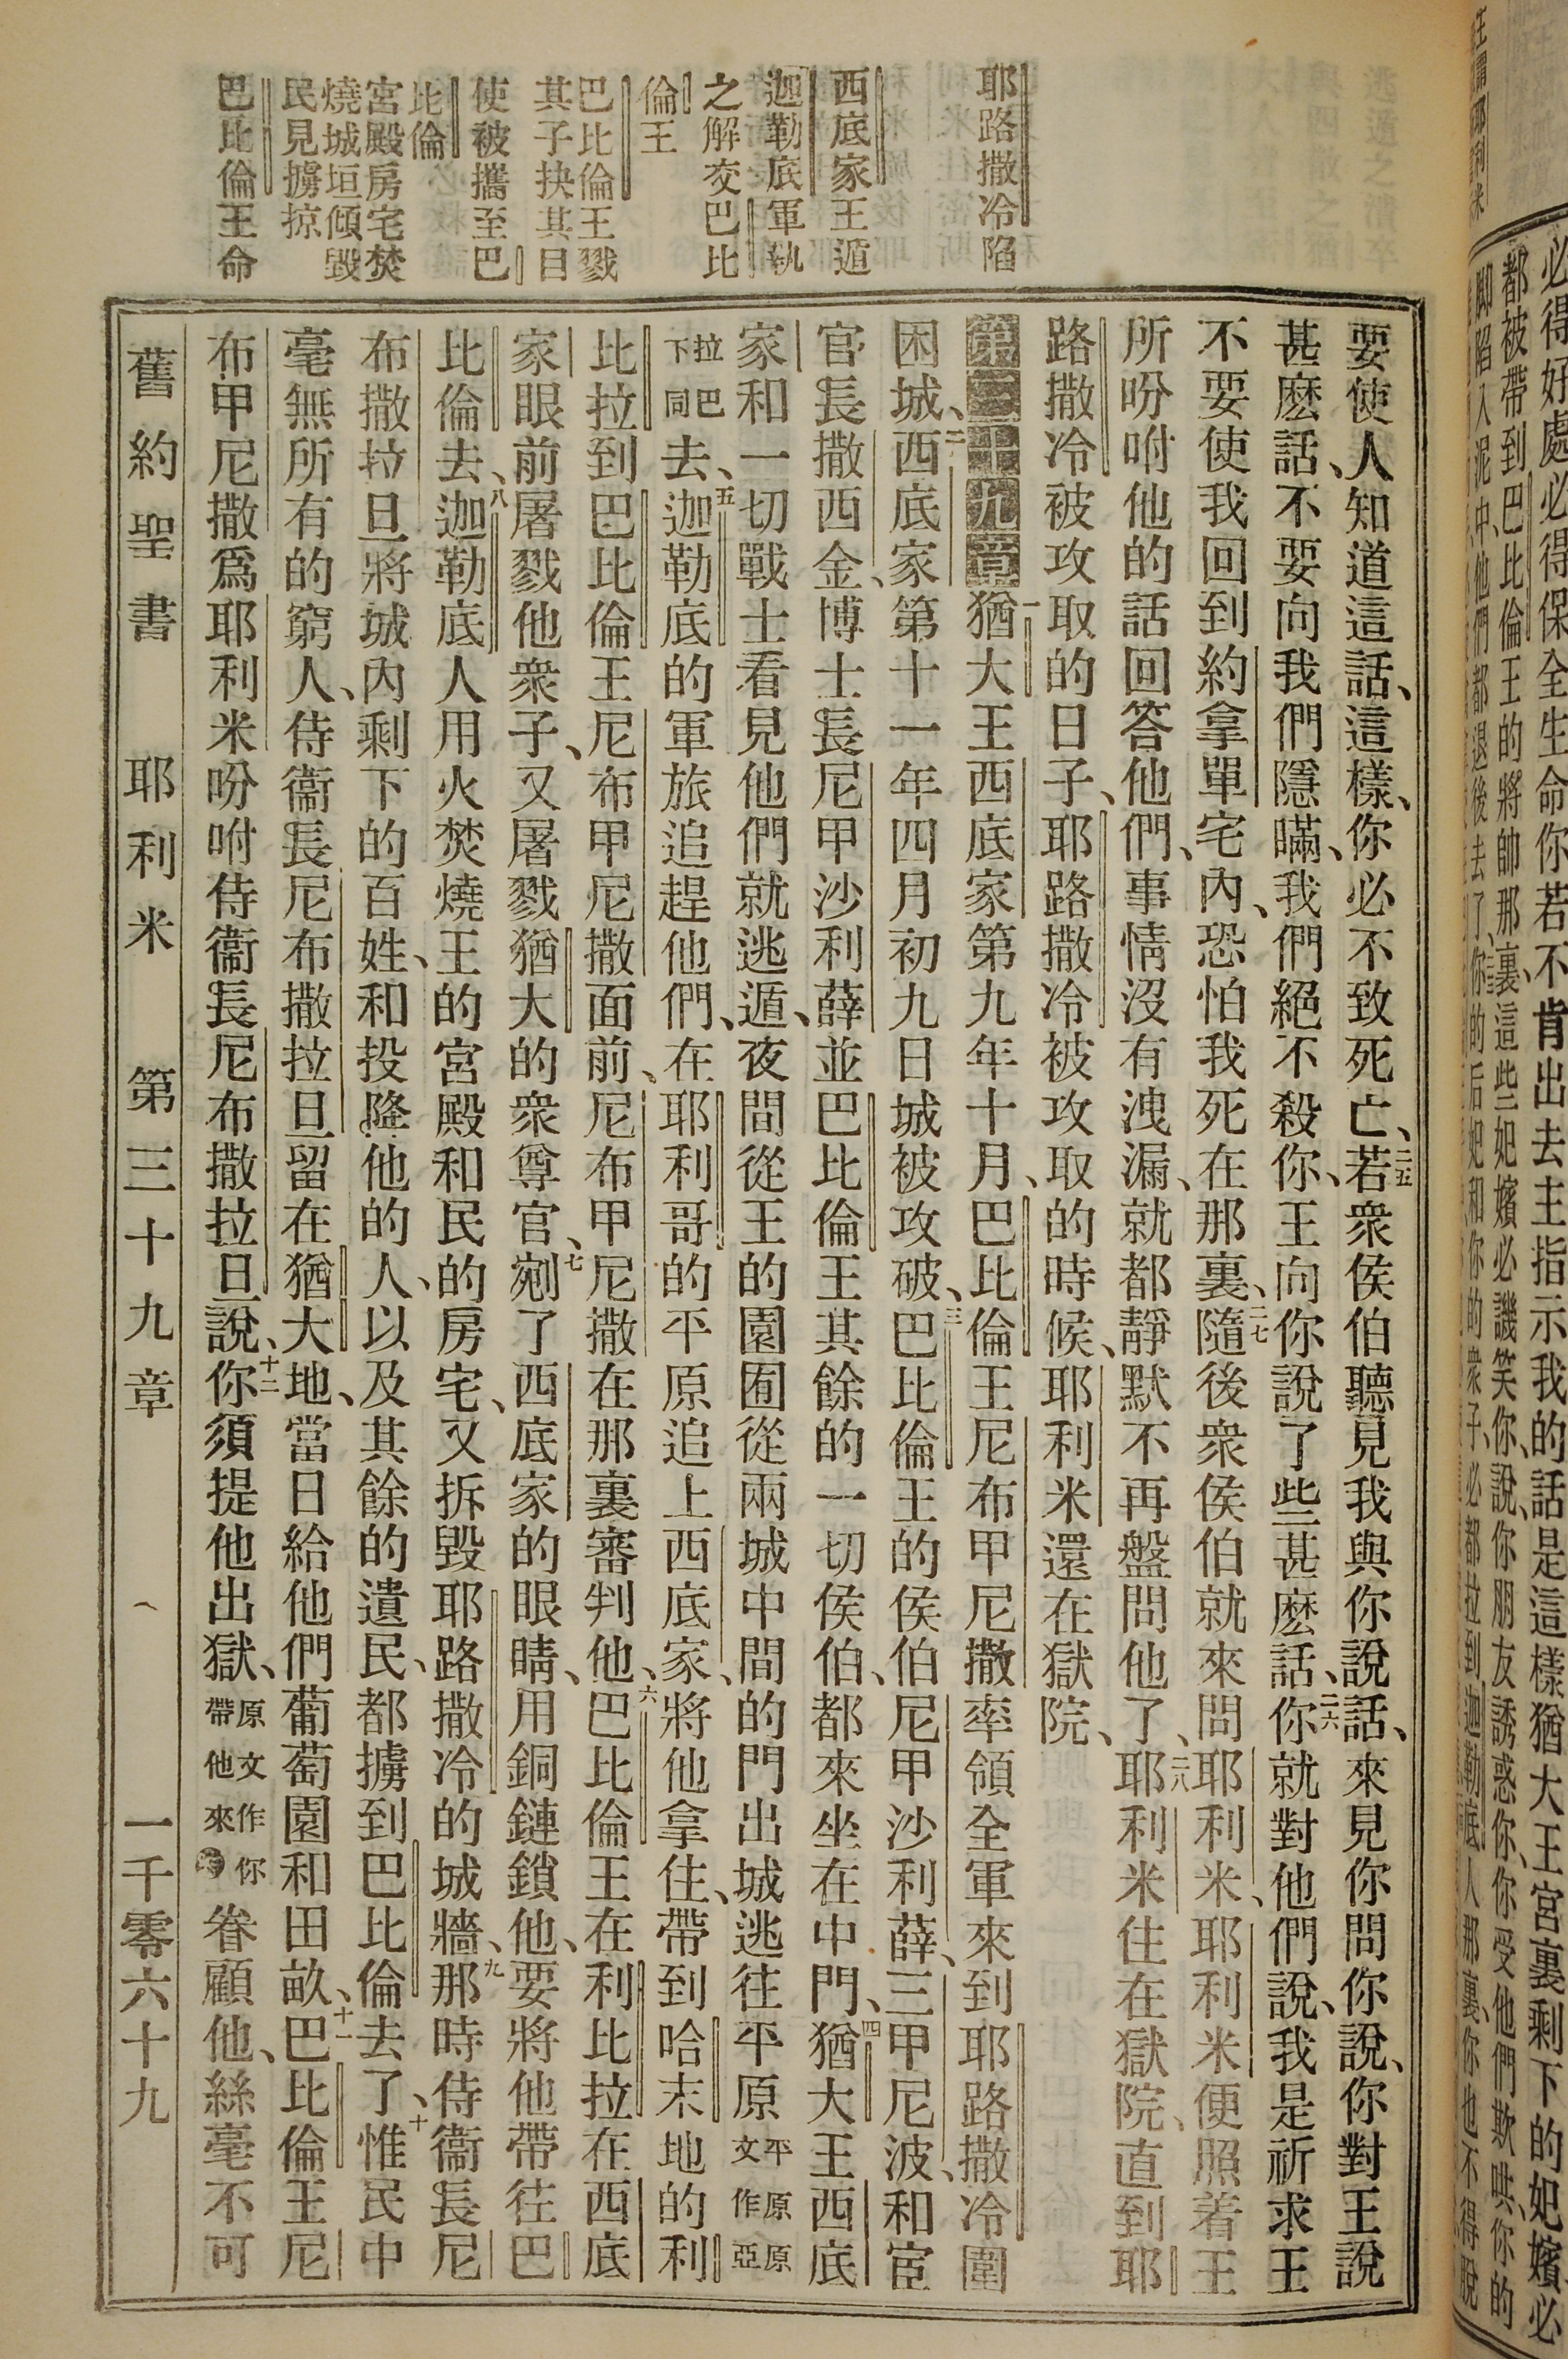 耶路撒冷陷
西底家王遁
迦勒底軍執
之解交巴比
倫王
巴比倫王戮
其子抉其目
使被攜至巴
比倫
宮殿房宅焚
燒城垣傾毀
民見擄掠
巴比倫王命
要使人知道這話、這樣、你必不致死亡、二五若衆侯伯聽見我與你說話、來見你問你說、你對王說
甚麽話、不要向我們隱瞞、我們絕不殺你、王向你說了些甚麽話、二六你就對他們說、我是祈求王
不要使我回到約拿單宅內、恐怕我死在那裏、二七隨後衆侯伯就來問耶利米、耶利米便照着王
所吩咐他的話回答他們、事情沒有洩漏、就都靜默不再盤問他了、二八耶利米住在獄院、直到耶
路撒冷被攻取的日子、耶路撒冷被攻取的時候、耶利米還在獄院、
第三十九章 一猶大王西底家第九年十月、巴比倫王尼布甲尼撒率領全軍來到耶路撒冷圍
困城、二西底家第十一年四月初九日城被攻破、三巴比倫王的侯伯尼甲沙利薛、三甲尼波、和宦
官長撒西金、博士長尼甲沙利薛並巴比倫王其餘的一切侯伯、都來坐在中門、四猶大王西底
家和一切戰士看見他們就逃遁、夜間從王的園囿從兩城中間的門出城逃往平原平原原文作亞
拉巴下同去、五迦勒底的軍旅追趕他們、在耶利哥的平原追上西底家、將他拿住、帶到哈末地的利
比拉到巴比倫王尼布甲尼撒面前、尼布甲尼撒在那裏審判他、六巴比倫王在利比拉在西底
家眼前屠戮他衆子、又屠戮猶大的衆尊官、七剜了西底家的眼睛、用銅鏈鎖他、要將他帶往巴
比倫去、八迦勒底人用火焚燒王的宮殿和民的房宅、又拆毀耶路撒冷的城牆、九那時侍衞長尼
布撒拉旦將城內剩下的百姓、和投降他的人、以及其餘的遺民、都擄到巴比倫去了、十惟民中
毫無所有的窮人、侍衞長尼布撒拉旦留在猶大地、當日給他們葡萄園和田畝、十一巴比倫王尼
布甲尼撒爲耶利米吩咐侍衞長尼布撒拉旦說、十二你須提他出獄、原文作你帶他來眷顧他、絲毫不可
舊約聖書 耶利米 第三十九章 一千零六十九
必得好處必得保全生命你若不肯出去主指示我的話是這樣猶大王宮裏剩下的妃嬪必
都被帶到巴比倫王的將帥那裏、這些妃嬪必譏笑你、說、你朋友誘惑你、你受他們欺哄、你的
脚陷入泥中、他們都退後去了、你的后妃和你的衆子、必都拉到迦勒底人那裏、你也不得脫